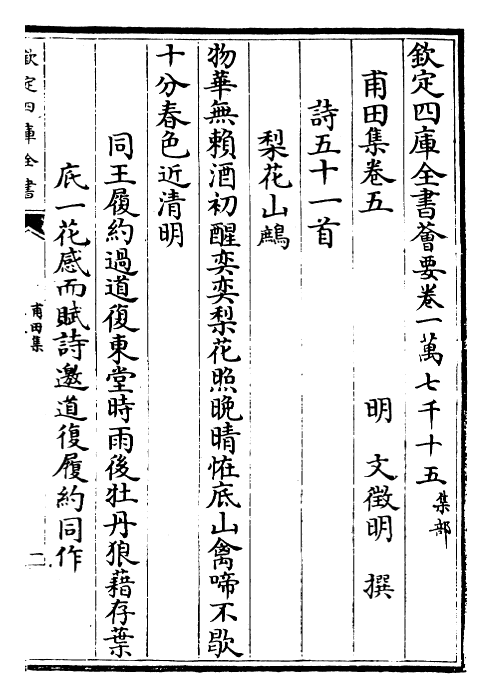 欽定四庫全書薈要卷一萬七千十五 集部
甫田集卷五 明 文徵明 撰
詩五十一首
梨花山鷓
物華無賴酒初醒奕奕梨花照晩晴恠底山禽啼不歇
十分春色近清明
同王履約過道復東堂時雨後牡丹狼藉存葉
底一花感而賦詩邀道復履約同作
欽定四庫全書
甫田集
二